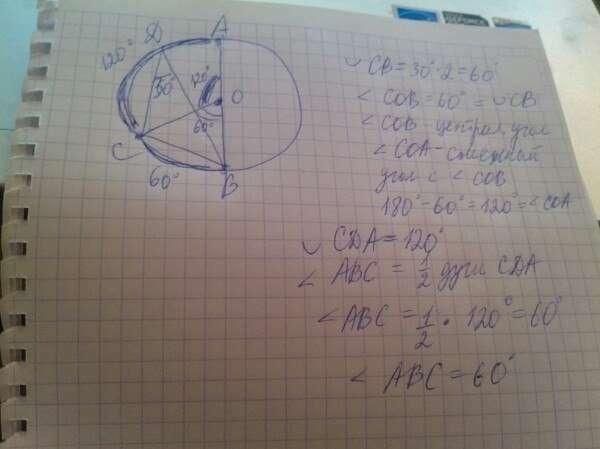 120° D A
30° 120° O
60°
C
60° B
◡ CB = 30° · 2 = 60°
∠ COB = 60° = ◡ CB
∠ COB - централ. угол
∠ COA - смежный
угол с ∠ COB
180° - 60° = 120° = ∠ COA
◡ CDA = 120°
∠ ABC = 1/2 дуги CDA
∠ ABC = 1/2 · 120° = 60°
∠ ABC = 60°